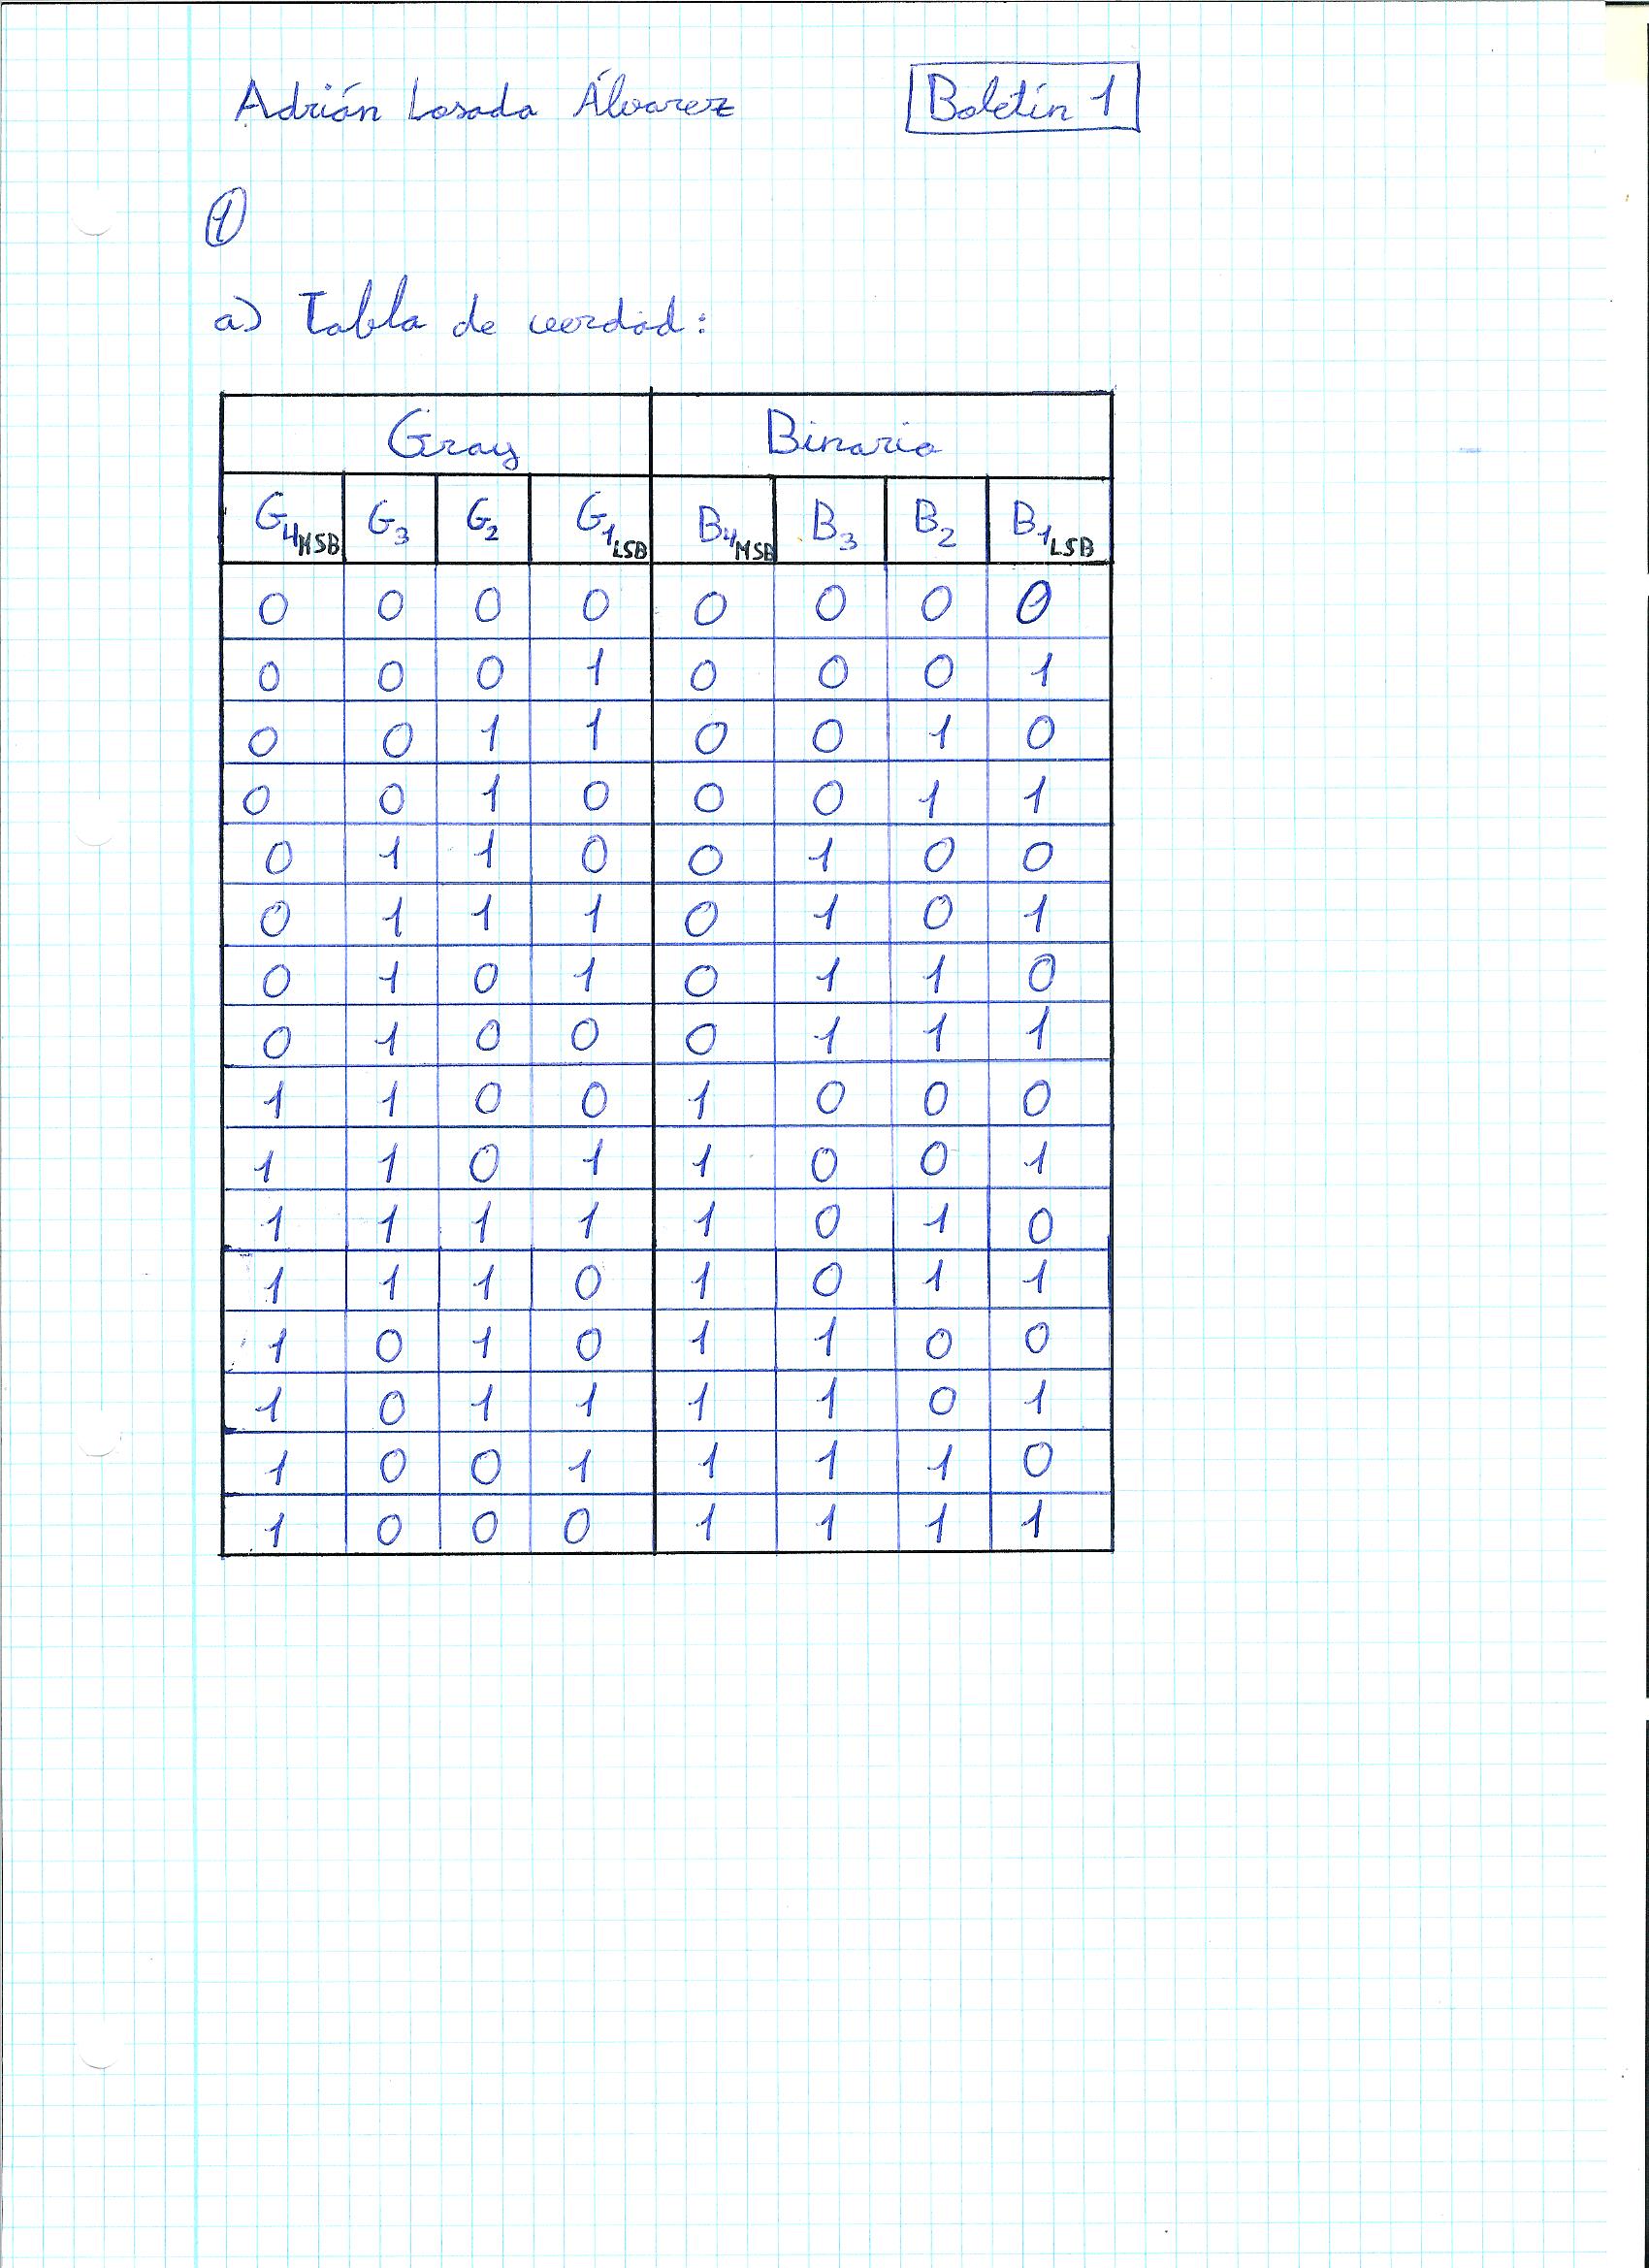 Adrián Losada Álvarez Boletín 1
1
a) Tabla de verdad:
Gray Binario
G4MSB G3 G2 G1LSB B4MSB B3 B2 B1LSB
0 0 0 0 0 0 0 0
0 0 0 1 0 0 0 1
0 0 1 1 0 0 1 0
0 0 1 0 0 0 1 1
0 1 1 0 0 1 0 0
0 1 1 1 0 1 0 1
0 1 0 1 0 1 1 0
0 1 0 0 0 1 1 1
1 1 0 0 1 0 0 0
1 1 0 1 1 0 0 1
1 1 1 1 1 0 1 0
1 1 1 0 1 0 1 1
1 0 1 0 1 1 0 0
1 0 1 1 1 1 0 1
1 0 0 1 1 1 1 0
1 0 0 0 1 1 1 1